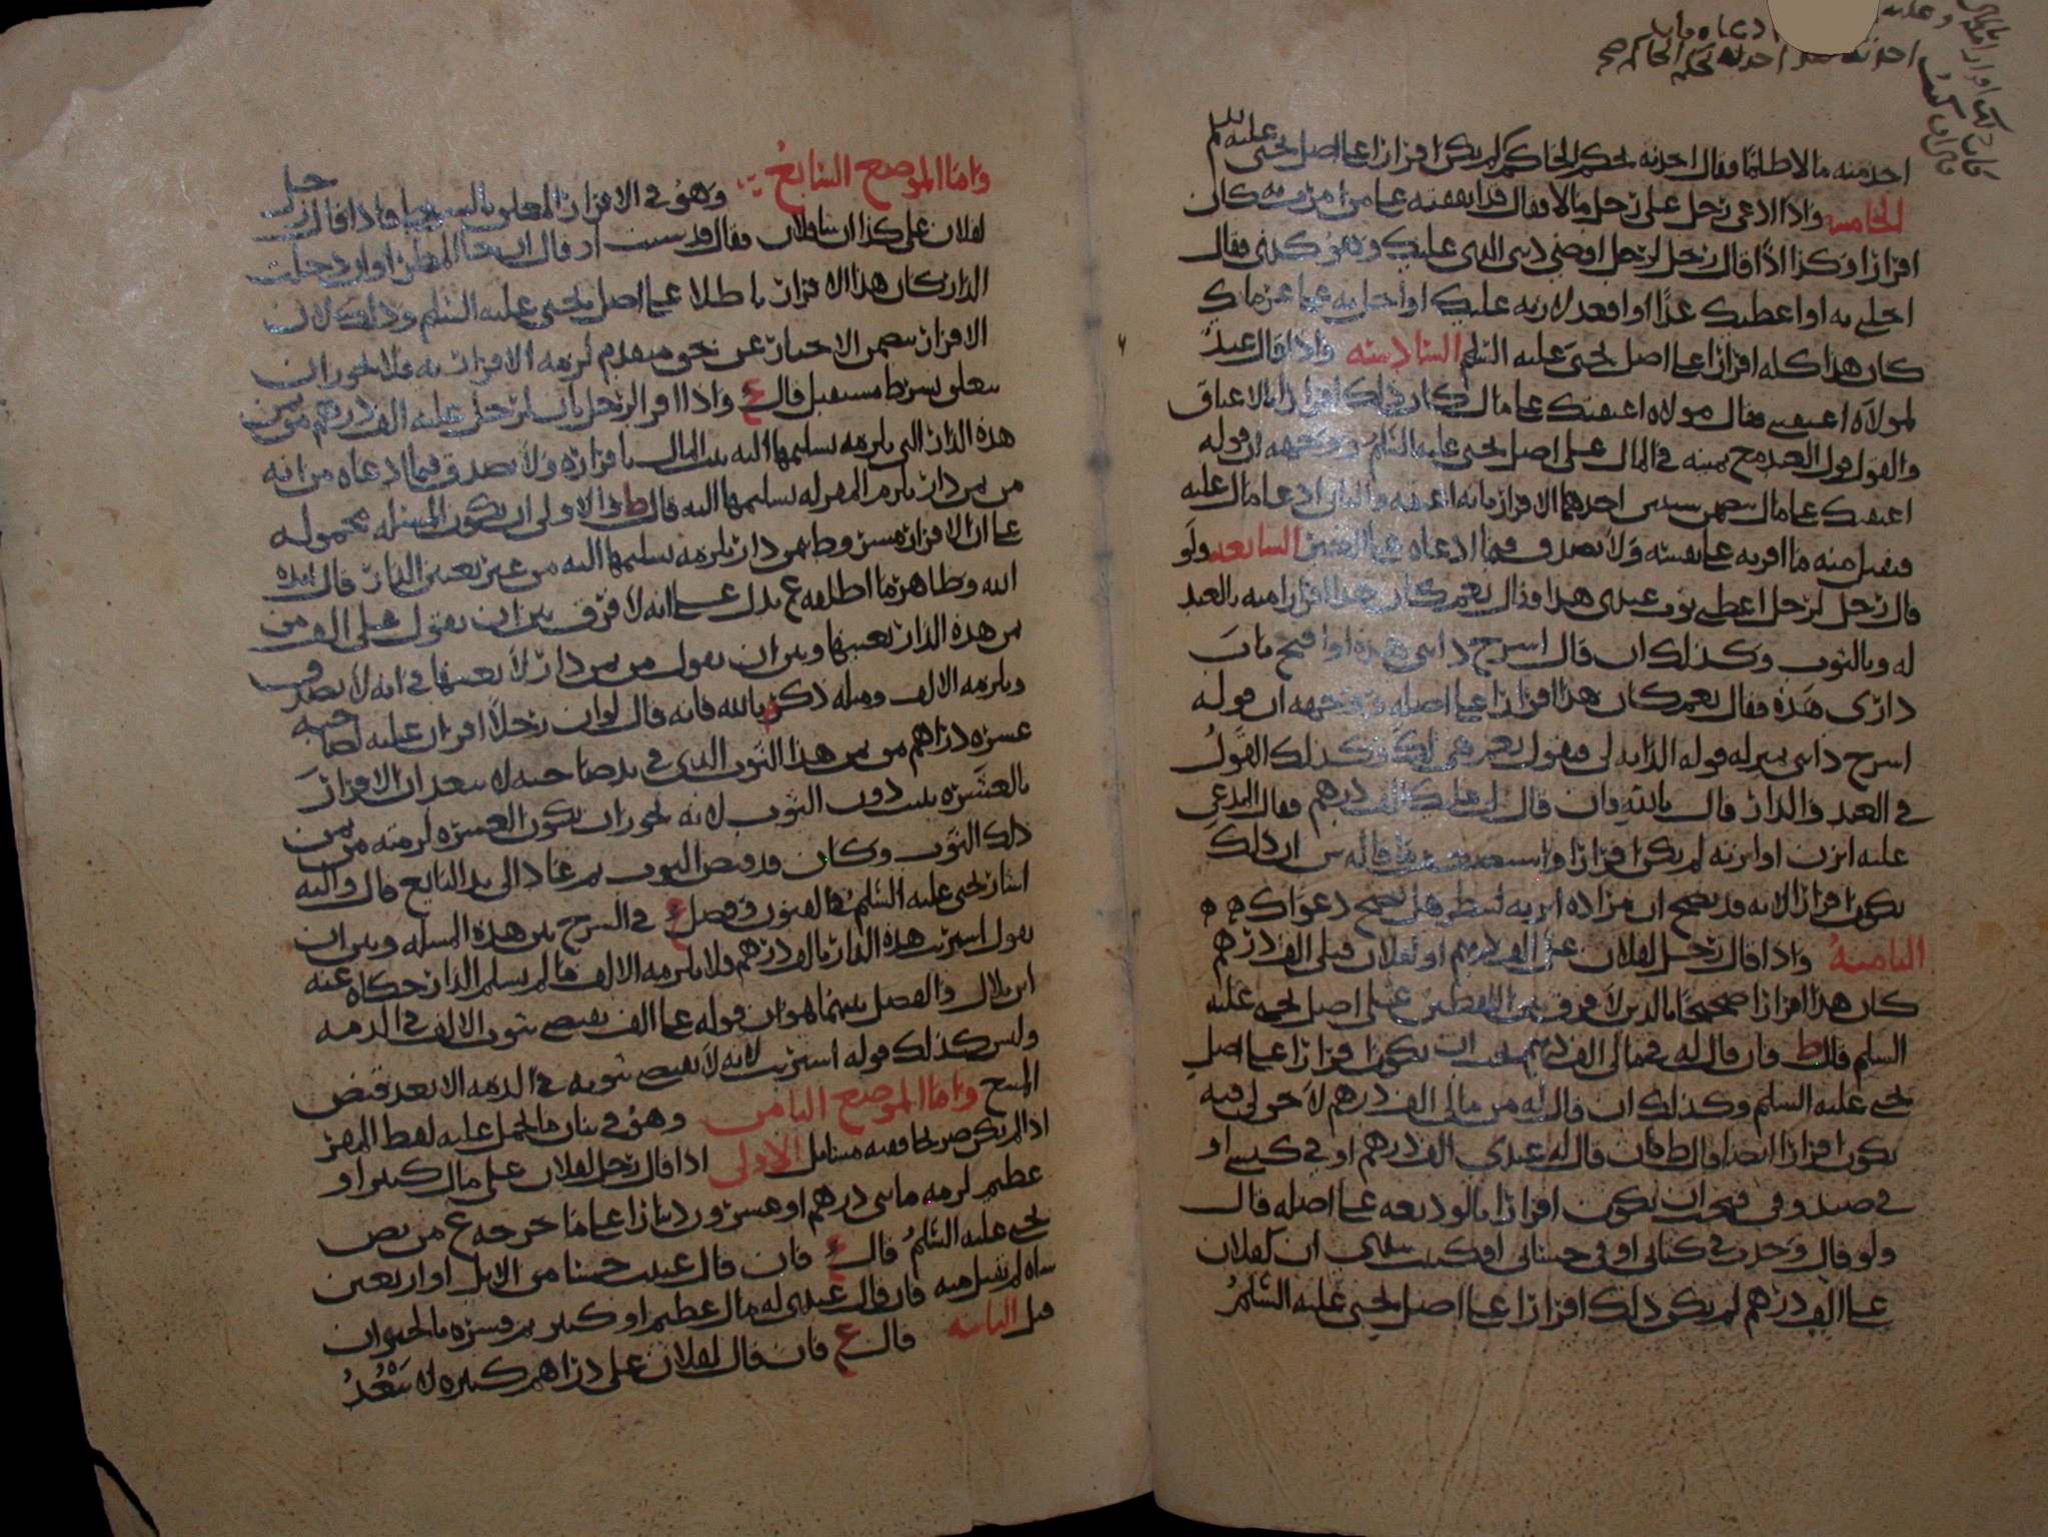 اخذ منه مالا ظلما فقال اخذته بحكم الحاكم لم يكن اقرارا على اصل يحيى عليه السلم
الخامسه واذا ادعى رجل على رجل مالا فقال قد ابعته كان
اقرارا وكذا اذا قال رجل لرجل اقضني ديني الذي عليك فقال
اجلني به او اعطيك غدا او اقعد لازنه عليك او احل به على غرمائك
كان هذا كله اقرارا على اصل يحيى عليه السلم السادسه واذا قال عبد
لمولاه اعتقني فقال مولاه اعتقتك على مال كان ذلك اقرارا بالاعتاق
والقول قول العبد مع يمينه في المال على اصل يحيى عليه السلم ووجهه ان قوله
اعتقتك على مال يتضمن شيئين احدهما الاقرار بانه اعتقه والثاني ادعا مال عليه
فيقبل منه ما اقر به على نفسه ولا يصدق فيما ادعاه على الغير السابعه ولو
قال رجل لرجل اعطني ثوب عبدي هذا فقال نعم كان هذا اقرارا منه بالعبد
له وبالثوب وكذلك ان قال اسرج دابتي هذه او افتح باب
داري هذه فقال نعم كان هذا اقرارا على اصله ووجهه ان قوله
اسرج دابتي بمنزلة قوله الدابه لي فيقول نعم هي لك وكذلك القول
في العبد والدار قال بالله فان قال لي عليك الف درهم فقال المدعى
عليه اتزن او اتزنه لم يكن اقرارا ان ذلك
يكون اقرارا لانه قد يصح ان مراده اتزنه لننظر هل تصح دعواك
الثامنة واذا قال رجل لفلان علي الف درهم او لفلان قبلي الف درهم
كان هذا اقرارا صحيحا بالدين لا فرق بين اللفظين على اصل يحيى عليه
السلم قال ط فان قال له في مالي الف درهم يجب ان يكون اقرارا على اصل
يحيى عليه السلم وكذلك ان قال له من مالي الف درهم لا حق لي فيه
يكون اقرارا ايضا قال ط فان قال له عندي الف درهم او في كيسي او
في صندوقي فيجب ان يكون اقرارا بالوديعه على اصله قال
ولو قال وجدت في كتابي او في حسابي او كتبت بيدي ان لفلان
علي الف درهم لم يكن ذلك اقرارا على اصل يحيى عليه السلم
واما الموضع السابع وهو في الاقرار المعلق بالشرط فاذا قال رجل
لفلان علي كذا ان شا فلان فقال قد شيت او قال ان جا المطر او ان دخلت
الدار كان هذا الاقرار باطلا على اصل يحيى عليه السلم وذلك لان
الاقرار يتضمن الاخبار عن حق متقدم لزمه الاقرار به فلا يجوز ان
يتعلق بشرط مستقبل قال ع واذا اقر الرجل بان لرجل عليه الف درهم من ثمن
هذه الدار التي يلزمه تسليمها اليه ثبت المال باقراره ولا يصدق فيما ادعاه من انه
من ثمن دار يلزم المقر له تسليمها اليه قال ط والاولى ان يكون المسله محموله
على ان الاقرار مشروط بثمن دار يلزمه تسليمها اليه من غير تعيين الدار قال ايده
الله وظاهر ما اطلقه ع يدل على انه لا فرق بين ان يقول علي الف من
ثمن هذه الدار بعينها وبين ان يقول من ثمن دار لا بعينها في انه لا يصدق
ويلزمه الالف ومثله ذكر م بالله فانه قال لو ان رجلا اقر ان عليه لصاحبه
عشره دراهم من ثمن هذا الثوب الذي في يد صاحبه لا يبعد ان الاقرار
بالعشره يثبت دون الثوب لانه يجوز ان يكون العشره لزمته من ثمن
ذلك الثوب وكان قد قبض الثوب ثم عاد الى يد البايع قال واليه
اشار يحيى عليه السلم في الفنون وفصل ع في الشرح بين هذه المسله وبين ان
يقول اشتريت هذه الدار بالف درهم فلا يلزمه الالف ما لم يسلم الدار حكاه عنه
ابن بلال والفصل بينهما هو ان قوله علي الف يقتضي ثبوت الالف في الذمه
وليس كذلك قوله اشتريت لانه لا يقتضي ثبوته في الذمه الا بعد قبض
المبيع واما الموضع الثامن وهو في بيان ما يحمل عليه لفظ المقر
اذا لم يكن صريحا ففيه مسايل الاولى اذا قال رجل لفلان علي مال كثير او
عظيم لزمه مايتي درهم او عشرون دينارا على ما خرجه ع من نص
يحيى عليه السلم قال ع فان قال عنيت خمسا من الابل او اربعين
شاه لم يقبل منه فان قال عندي له مال عظيم او كثير ثم فسره بالحيوان
قبل الثانيه قال ع فان قال لفلان علي دراهم كثيره لا تعد